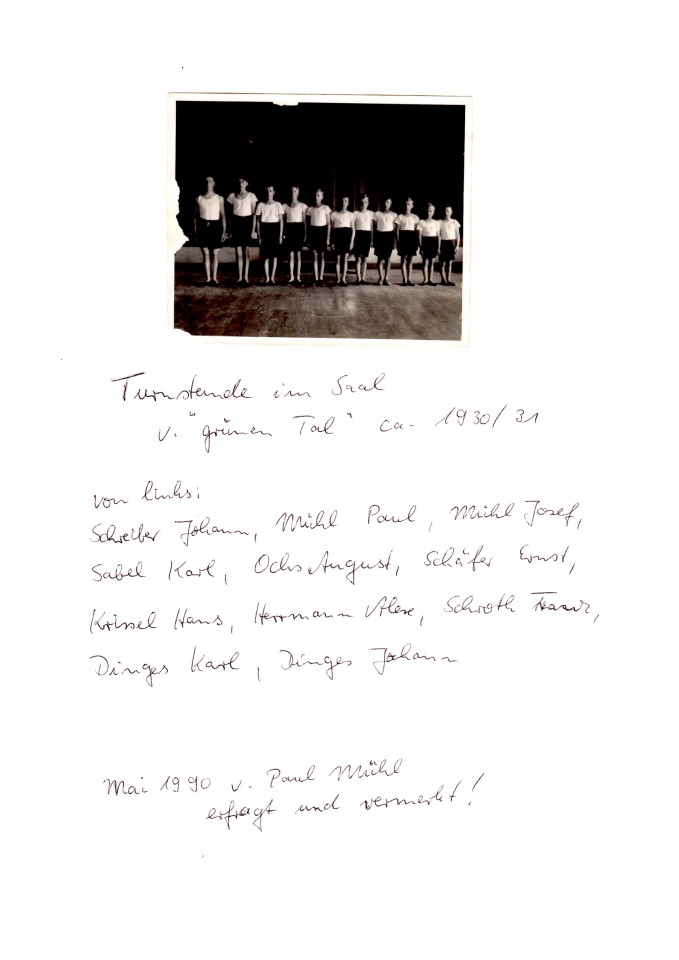 Turnstunde im Saal
v. "grünen Tal" ca. 1930/31
von links:
Schreiber Johann, Mühl Paul, Mühl Josef,
Sabel Karl, Ochs August, Schäfer Ernst,
Krissel Hans, Herrmann Alex, Schroth Franz,
Dinges Karl, Dinges Johann
Mai 1990 v. Paul Mühl
erfragt und vermerkt!